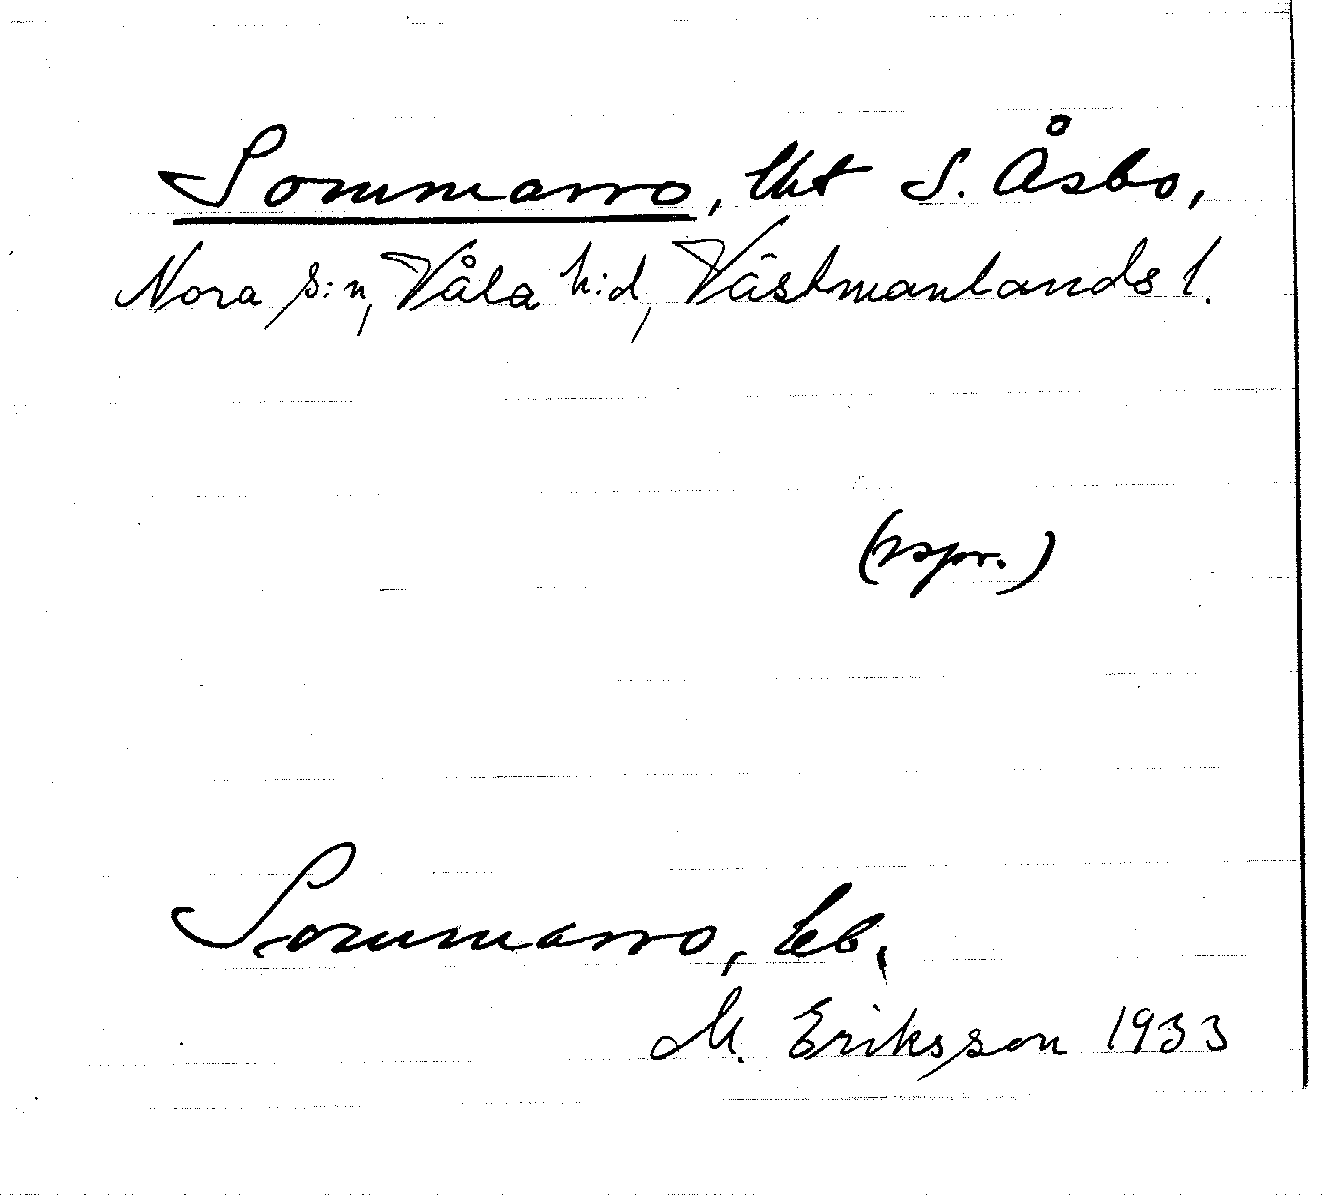 Sommarro, lht S. Åsbo,
Nora s:n, Våla h:d, Västmanlands l.
(rspr.)
Sommarro, bb,
M. Eriksson 1933